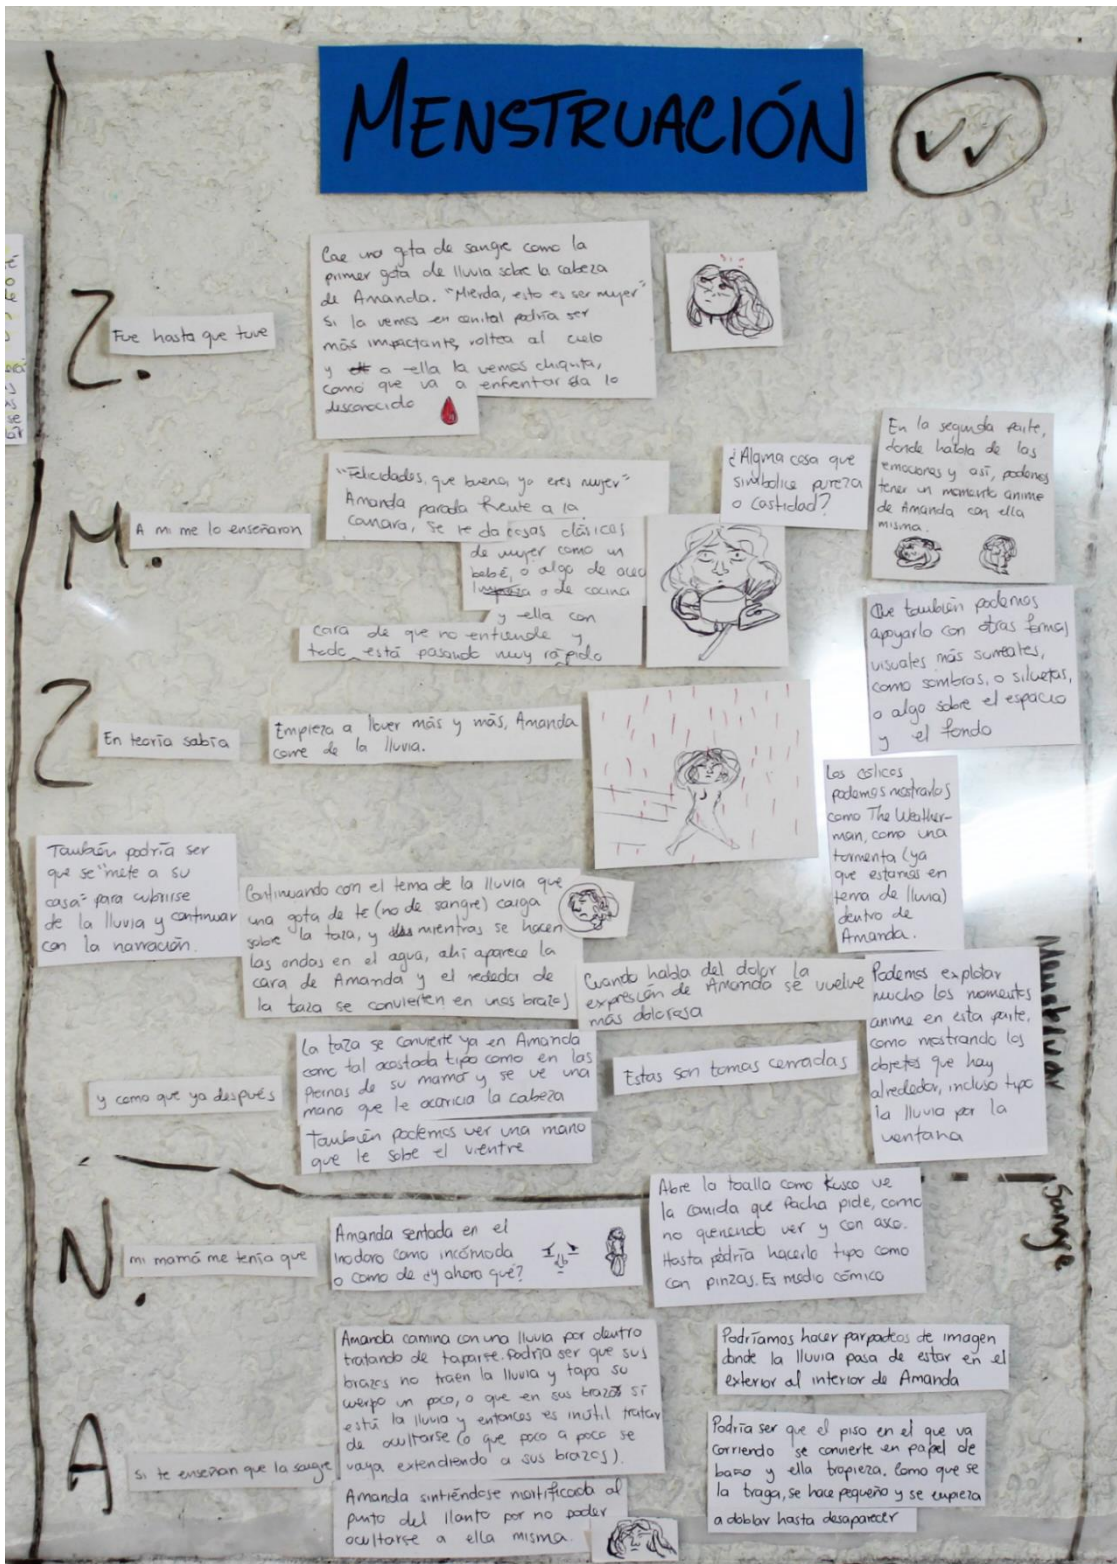 MENSTRUACIÓN
Z.
Fue hasta que tuve
Cae una gota de sangre como la
primer gota de lluvia sobre la cabeza
de Amanda. "Mierda, esto es ser mujer"
Si la vemos en cenital podría ser
más impactante, voltea al cielo
y a ella la vemos chiquita,
como que va a enfrentar a lo
desconocido
M.
A mi me lo enseñaron
"Felicidades, que buena, ya eres mujer"
Amanda parada frente a la
camara, se le da cosas clásicas
de mujer como un
bebé, o algo de aseo
limpieza o de cocina
y ella con
cara de que no entiende y
todo está pasando muy rápido
¿Alguna cosa que
simbolice pureza
o castidad?
En la segunda parte,
donde habla de las
emociones y así, podemos
tener un momento anime
de Amanda con ella
misma.
Que también podemos
apoyarlo con otras formas
visuales más surreales,
como sombras, o siluetas,
o algo sobre el espacio
y el fondo
Z
En teoría sabía
Empieza a llover más y más, Amanda
corre de la lluvia.
Los cólicos
podemos mostrarlos
como The Weather-
man, como una
tormenta (ya
que estamos en
tema de lluvia)
dentro de
Amanda.
También podría ser
que se "mete a su
casa" para cubrirse
de la lluvia y continuar
con la narración.
Continuando con el tema de la lluvia que
una gota de te (no de sangre) caiga
sobre la taza, y mientras se hacen
las ondas en el agua, ahí aparece la
cara de Amanda y el rededor de
la taza se convierten en unos brazos
Cuando habla del dolor la
expresión de Amanda se vuelve
más dolorosa
Podemos explotar
mucho los momentos
anime en esta parte,
como mostrando los
objetos que hay
alrededor, incluso tipo
la lluvia por la
ventana
Menstruar
y como que ya después
La taza se convierte ya en Amanda
como tal acostada tipo como en las
piernas de su mamá y se ve una
mano que le acaricia la cabeza
También podemos ver una mano
que le sobe el vientre
Estas son tomas cerradas
Sangre
N.
mi mamá me tenía que
Amanda sentada en el
inodoro como incómoda
o como de ¿y ahora qué?
Abre la toalla como Kusco ve
la comida que Pacha pide, como
no queriendo ver y con asco.
Hasta podría hacerlo tipo como
con pinzas. Es medio cómico
A
Si te enseñan que la sangre
Amanda camina con una lluvia por dentro
tratando de taparse. Podría ser que sus
brazos no traen la lluvia y tapa su
cuerpo un poco, o que en sus brazos sí
está la lluvia y entonces es inútil tratar
de ocultarse (o que poco a poco se
vaya extendiendo a sus brazos).
Amanda sintiéndose mortificada al
punto del llanto por no poder
ocultarse a ella misma.
Podríamos hacer parpadeos de imagen
donde la lluvia pasa de estar en el
exterior al interior de Amanda
Podría ser que el piso en el que va
corriendo se convierte en papel de
baño y ella tropieza. Como que se
la traga, se hace pequeño y se empieza
a doblar hasta desaparecer